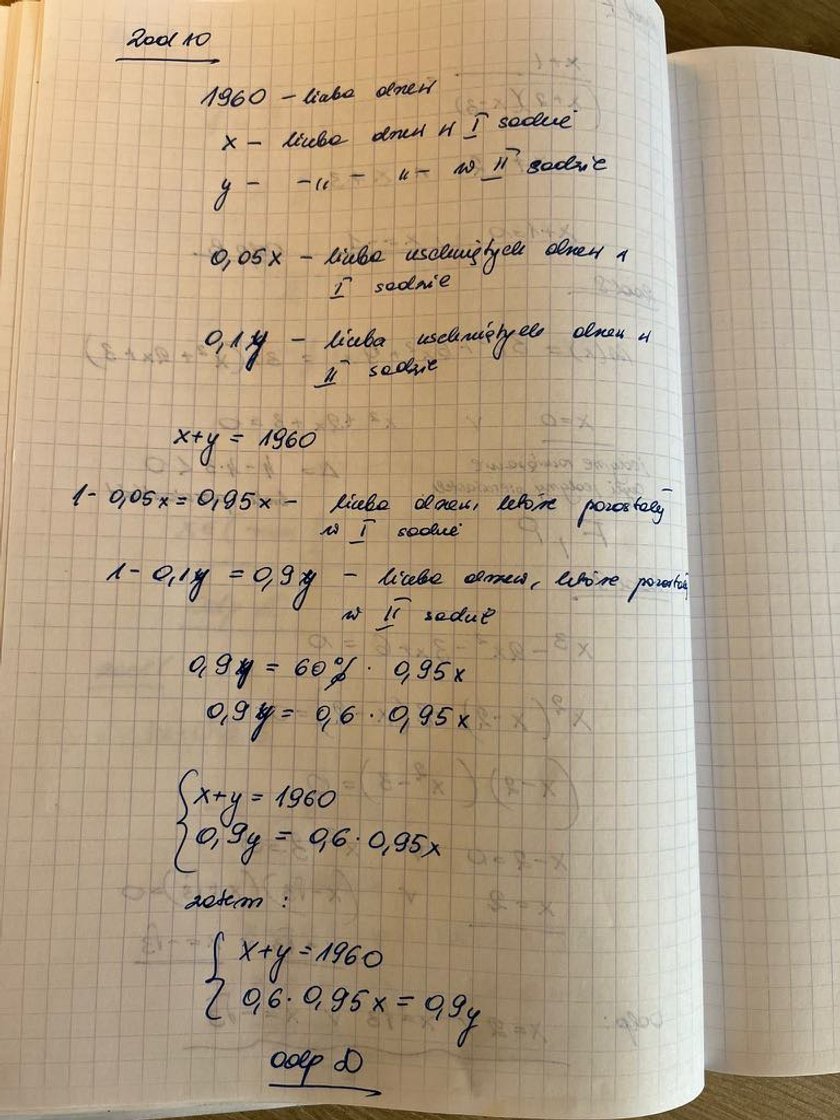 Zad 10
1960 – liczba drzew
x – liczba drzew w I sadzie
y – -„- „- w II sadzie
0,05x – liczba uschniętych drzew w
I sadzie
0,1y – liczba uschniętych drzew w
II sadzie
x+y = 1960
1- 0,05x = 0,95x – liczba drzew, które pozostały
w I sadzie
1- 0,1y = 0,9y – liczba drzew, które pozostały
w II sadzie
0,9y = 60% · 0,95x
0,9y = 0,6 · 0,95x
x+y = 1960
0,9y = 0,6 · 0,95x
zatem :
x+y = 1960
0,6 · 0,95x = 0,9y
odp D